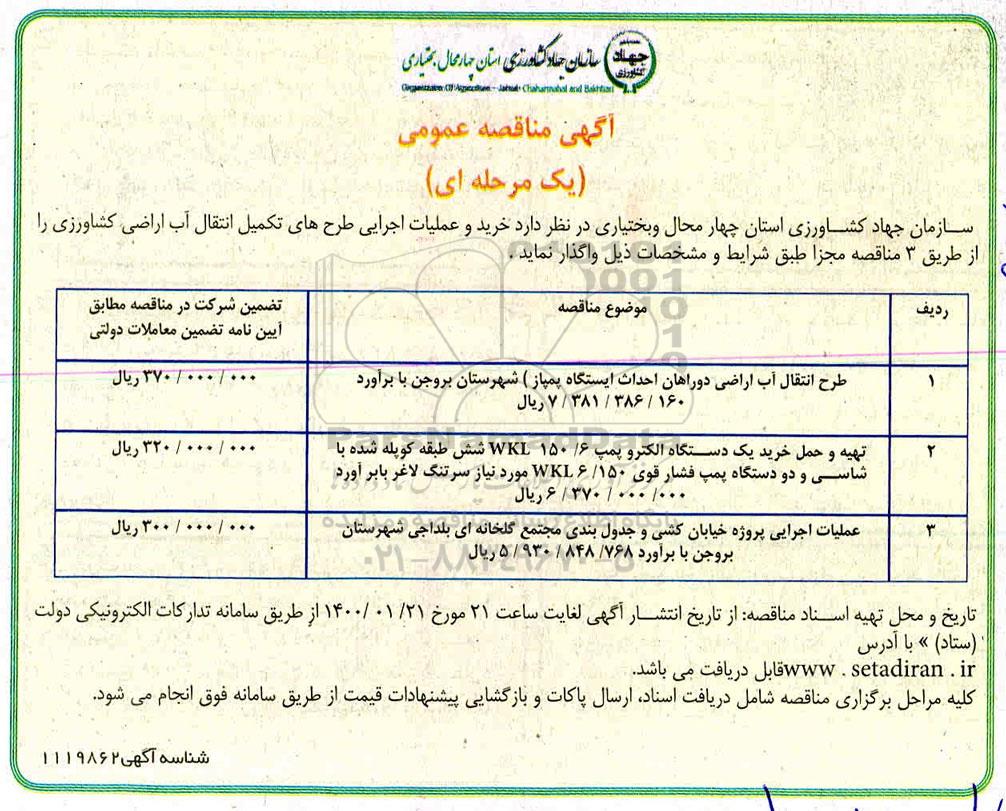 جهاد
کشاورزی
سازمان جهاد کشاورزی استان چهارمحال و بختیاری
Organization Of Agriculture - Jahad Chaharmahal and Bakhtiari
آگهی مناقصه عمومی
(یک مرحله ای)
سازمان جهاد کشاورزی استان چهار محال وبختیاری در نظر دارد خرید و عملیات اجرایی طرح های تکمیل انتقال آب اراضی کشاورزی را
از طریق ۳ مناقصه مجزا طبق شرایط و مشخصات ذیل واگذار نماید .
ردیف موضوع مناقصه تضمین شرکت در مناقصه مطابق
آیین نامه تضمین معاملات دولتی
۱ طرح انتقال آب اراضی دوراهان احداث ایستگاه پمپاژ ) شهرستان بروجن با برآورد ۳۷۰ / ۰۰۰ / ۰۰۰ ریال
۷ / ۳۸۱ / ۳۸۶ / ۱۶۰ ریال
۲ تهیه و حمل خرید یک دستگاه الکترو پمپ ۶/ ۱۵۰ WKL شش طبقه کوپله شده با ۳۲۰ / ۰۰۰ / ۰۰۰ ریال
شاسی و دو دستگاه پمپ فشار قوی ۱۵۰/ ۶ WKL مورد نیاز سرتنگ لاغر بابر آورد
۶ / ۳۷۰ / ۰۰۰ / ۰۰۰ ریال
۳ عملیات اجرایی پروژه خیابان کشی و جدول بندی مجتمع گلخانه ای بلداجی شهرستان ۳۰۰ / ۰۰۰ / ۰۰۰ ریال
بروجن با برآورد ۷۶۸/ ۸۴۸ / ۹۳۰ / ۵ ریال
ParsNamadData
۰۲۱-۸۸۳۴۹۶۷۰-۵
تاریخ و محل تهیه اسناد مناقصه: از تاریخ انتشار آگهی لغایت ساعت ۲۱ مورخ ۲۱/ ۰۱/ ۱۴۰۰ از طریق سامانه تدارکات الکترونیکی دولت
(ستاد) » با آدرس
www . setadiran . ir قابل دریافت می باشد.
کلیه مراحل برگزاری مناقصه شامل دریافت اسناد، ارسال پاکات و بازگشایی پیشنهادات قیمت از طریق سامانه فوق انجام می شود.
شناسه آگهی۱۱۱۹۸۶۲